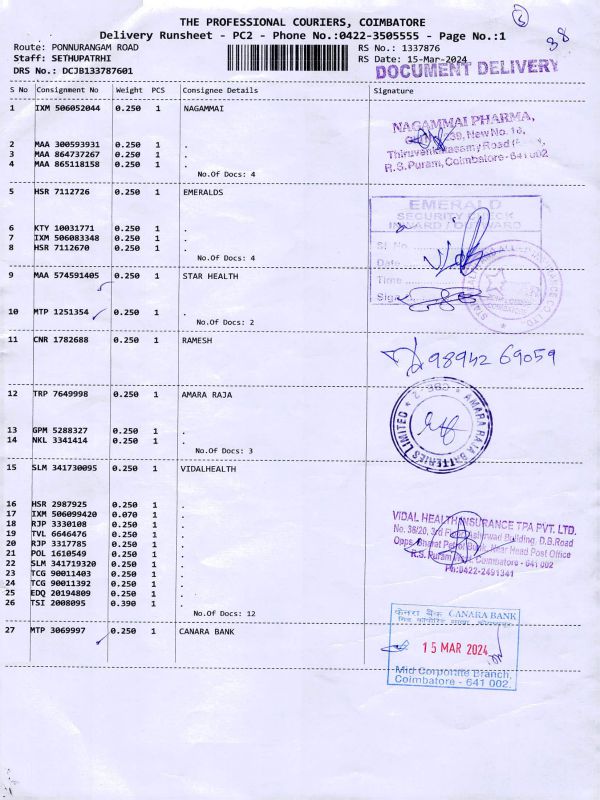 THE PROFESSIONAL COURIERS, COIMBATORE
Delivery Runsheet - PC2 - Phone No.:0422-3505555 - Page No.:1
Route: PONNURANGAM ROAD RS No.: 1337876
Staff: SETHUPATRHI RS Date: 15-Mar-2024
DRS No.: DCJB133787601 DOCUMENT DELIVERY
S No Consignment No Weight PCS Consignee Details Signature
1 IXM 506052044 0.250 1 NAGAMMAI
NAGAMMAI PHARMA,
39, New No. 16,
R.S. Puram, Coimbatore - 641 002
2 MAA 300593931 0.250 1 .
3 MAA 864737267 0.250 1 .
4 MAA 865118158 0.250 1 .
No.Of Docs: 4
5 HSR 7112726 0.250 1 EMERALDS
EMERALD
SECURITY CHECK
INWARD / OUTWARD
Sl. No.
Date
Time
6 KTY 10031771 0.250 1 .
7 IXM 506083348 0.250 1 .
8 HSR 7112670 0.250 1 .
No.Of Docs: 4
9 MAA 574591405 0.250 1 STAR HEALTH
10 MTP 1251354 0.250 1 .
No.Of Docs: 2
11 CNR 1782688 0.250 1 RAMESH
98942 69059
12 TRP 7649998 0.250 1 AMARA RAJA
AMARA RAJA BATTERIES LIMITED * CBE-2 *
13 GPM 5288327 0.250 1 .
14 NKL 3341414 0.250 1 .
No.Of Docs: 3
15 SLM 341730095 0.250 1 VIDALHEALTH
16 HSR 2987925 0.250 1 .
17 IXM 506099420 0.070 1 .
18 RJP 3330108 0.250 1 .
19 TVL 6646476 0.250 1 .
20 RJP 3317785 0.250 1 .
21 POL 1610549 0.250 1 .
22 SLM 341719320 0.250 1 .
23 TCG 90011403 0.250 1 .
24 TCG 90011392 0.250 1 .
25 EDQ 20194809 0.250 1 .
26 TSI 2008095 0.390 1 .
No.Of Docs: 12
VIDAL HEALTH INSURANCE TPA PVT. LTD.
No. 38/20, 3rd Building, D.B.Road
Near Head Post Office
R.S. Puram Coimbatore - 641 002
Ph:0422-2491341
27 MTP 3069997 0.250 1 CANARA BANK
केनरा बैंक CANARA BANK
15 MAR 2024
Mid Corporate Branch,
Coimbatore - 641 002.